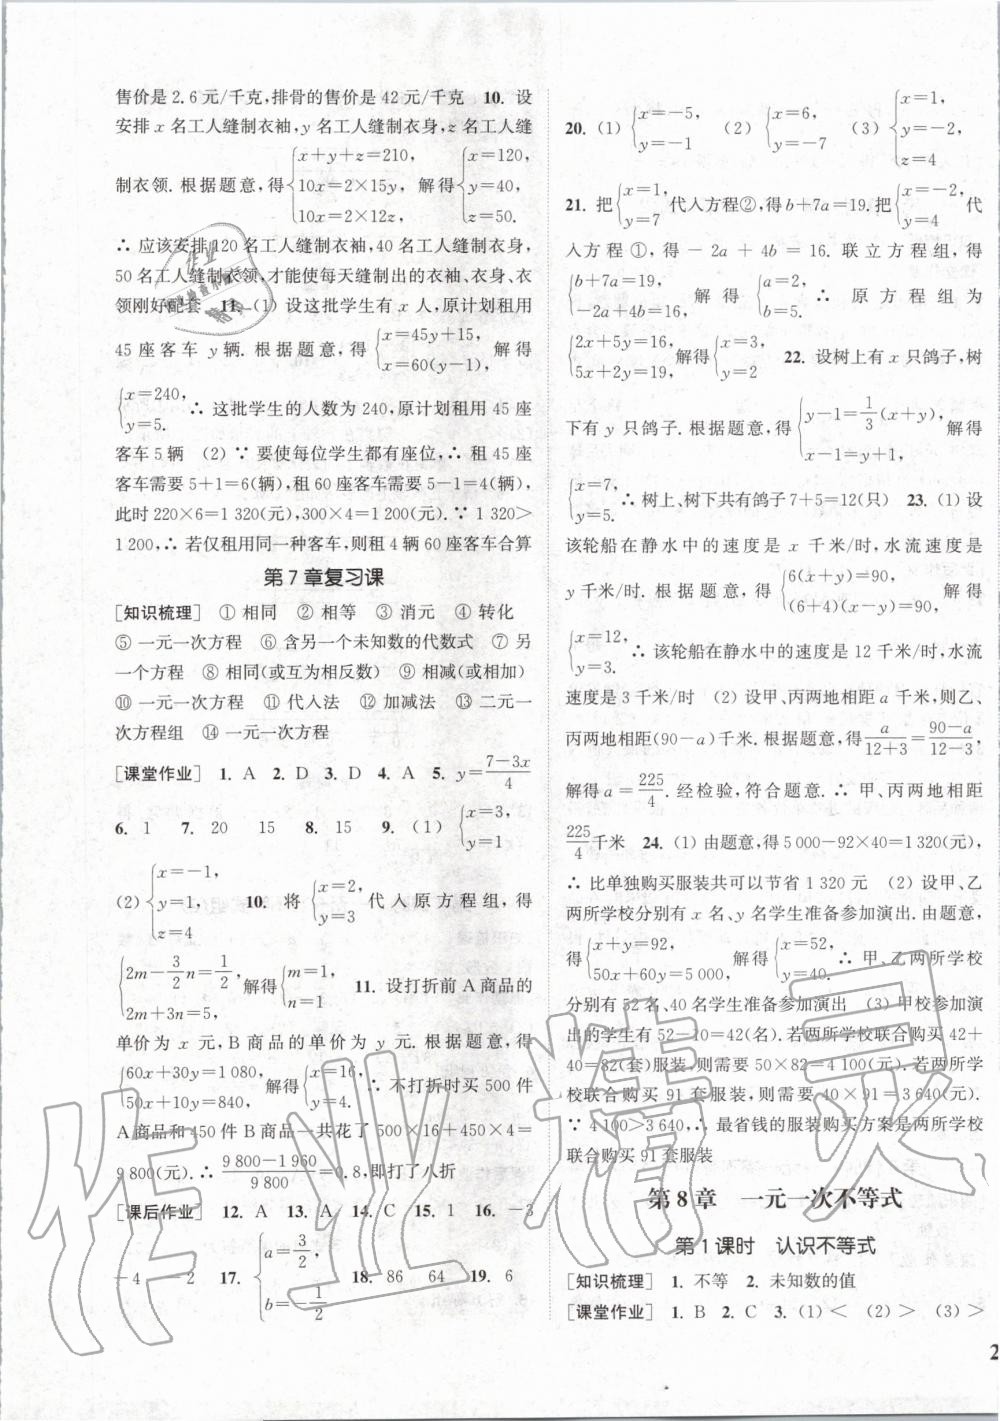 售价是 2.6 元/千克,排骨的售价是 42 元/千克 10. 设
安排 x 名工人缝制衣袖,y 名工人缝制衣身,z 名工人缝
制衣领. 根据题意,得{x+y+z=210, 10x=2×15y, 10x=2×12z, 解得{x=120, y=40, z=50.
∴ 应该安排 120 名工人缝制衣袖,40 名工人缝制衣身,
50 名工人缝制衣领,才能使每天缝制出的衣袖、衣身、衣
领刚好配套 11. (1) 设这批学生有 x 人,原计划租用
45 座客车 y 辆. 根据题意,得{x=45y+15, x=60(y-1), 解得
{x=240, y=5. ∴ 这批学生的人数为 240,原计划租用 45 座
客车 5 辆 (2) ∵ 要使每位学生都有座位,∴ 租 45 座
客车需要 5+1=6(辆),租 60 座客车需要 5-1=4(辆),
此时 220×6=1 320(元),300×4=1 200(元). ∵ 1 320>
1 200,∴ 若仅租用同一种客车,则租 4 辆 60 座客车合算
第 7 章复习课
[知识梳理] ① 相同 ② 相等 ③ 消元 ④ 转化
⑤ 一元一次方程 ⑥ 含另一个未知数的代数式 ⑦ 另
一个方程 ⑧ 相同(或互为相反数) ⑨ 相减(或相加)
⑩ 一元一次方程 ⑪ 代入法 ⑫ 加减法 ⑬ 二元一
次方程组 ⑭ 一元一次方程
[课堂作业] 1. A 2. D 3. D 4. A 5. y=(7-3x)/4
6. 1 7. 20 15 8. 15 9. (1) {x=3, y=1
(2) {x=-1, y=1, z=4 10. 将{x=2, y=3 代入原方程组,得
{2m-3/2n=1/2, 2m+3n=5, 解得{m=1, n=1 11. 设打折前 A 商品的
单价为 x 元,B 商品的单价为 y 元. 根据题意,得
{60x+30y=1 080, 50x+10y=840, 解得{x=16, y=4. ∴ 不打折时买 500 件
A 商品和 450 件 B 商品一共花了 500×16+450×4=
9 800(元). ∴ (9 800-1 960)/9 800=0.8,即打了八折
[课后作业] 12. A 13. A 14. C 15. 1 16. -3
-4 -2 17. {a=3/2, b=-1/2 18. 86 64 19. 6
20. (1) {x=-5, y=-1 (2) {x=6, y=-7 (3) {x=1, y=-2, z=4
21. 把{x=1, y=7 代入方程②,得 b+7a=19. 把{x=-2, y=4 代入
方程 ①,得 -2a+4b=16. 联立方程组,得
{b+7a=19, -2a+4b=16, 解得{a=2, b=5. ∴ 原方程组为
{2x+5y=16, 5x+2y=19, 解得{x=3, y=2 22. 设树上有 x 只鸽子,树
下有 y 只鸽子. 根据题意,得{y-1=1/3(x+y), x-1=y+1, 解得
{x=7, y=5. ∴ 树上、树下共有鸽子 7+5=12(只) 23. (1) 设
该轮船在静水中的速度是 x 千米/时,水流速度是
y 千米/时. 根据题意,得{6(x+y)=90, (6+4)(x-y)=90, 解得
{x=12, y=3. ∴ 该轮船在静水中的速度是 12 千米/时,水流
速度是 3 千米/时 (2) 设甲、丙两地相距 a 千米,则乙、
丙两地相距(90-a)千米. 根据题意,得a/(12+3)=(90-a)/(12-3),
解得 a=225/4. 经检验,符合题意. ∴ 甲、丙两地相距
225/4千米 24. (1) 由题意,得 5 000-92×40=1 320(元),
∴ 比单独购买服装共可以节省 1 320 元 (2) 设甲、乙
两所学校分别有 x 名、y 名学生准备参加演出. 由题意,
得{x+y=92, 50x+60y=5 000, 解得{x=52, y=40. ∴ 甲、乙两所学校
分别有 52 名、40 名学生准备参加演出 (3) 甲校参加演
出的学生有 52-10=42(名). 若两所学校联合购买 42+
40=82(套)服装,则需要 50×82=4 100(元). 若两所学
校联合购买 91 套服装,则需要 40×91=3 640(元).
∵ 4 100>3 640,∴ 最省钱的服装购买方案是两所学校
联合购买 91 套服装
第 8 章 一元一次不等式
第 1 课时 认识不等式
[知识梳理] 1. 不等 2. 未知数的值
[课堂作业] 1. B 2. C 3. (1) < (2) > (3) >
2
作业精灵